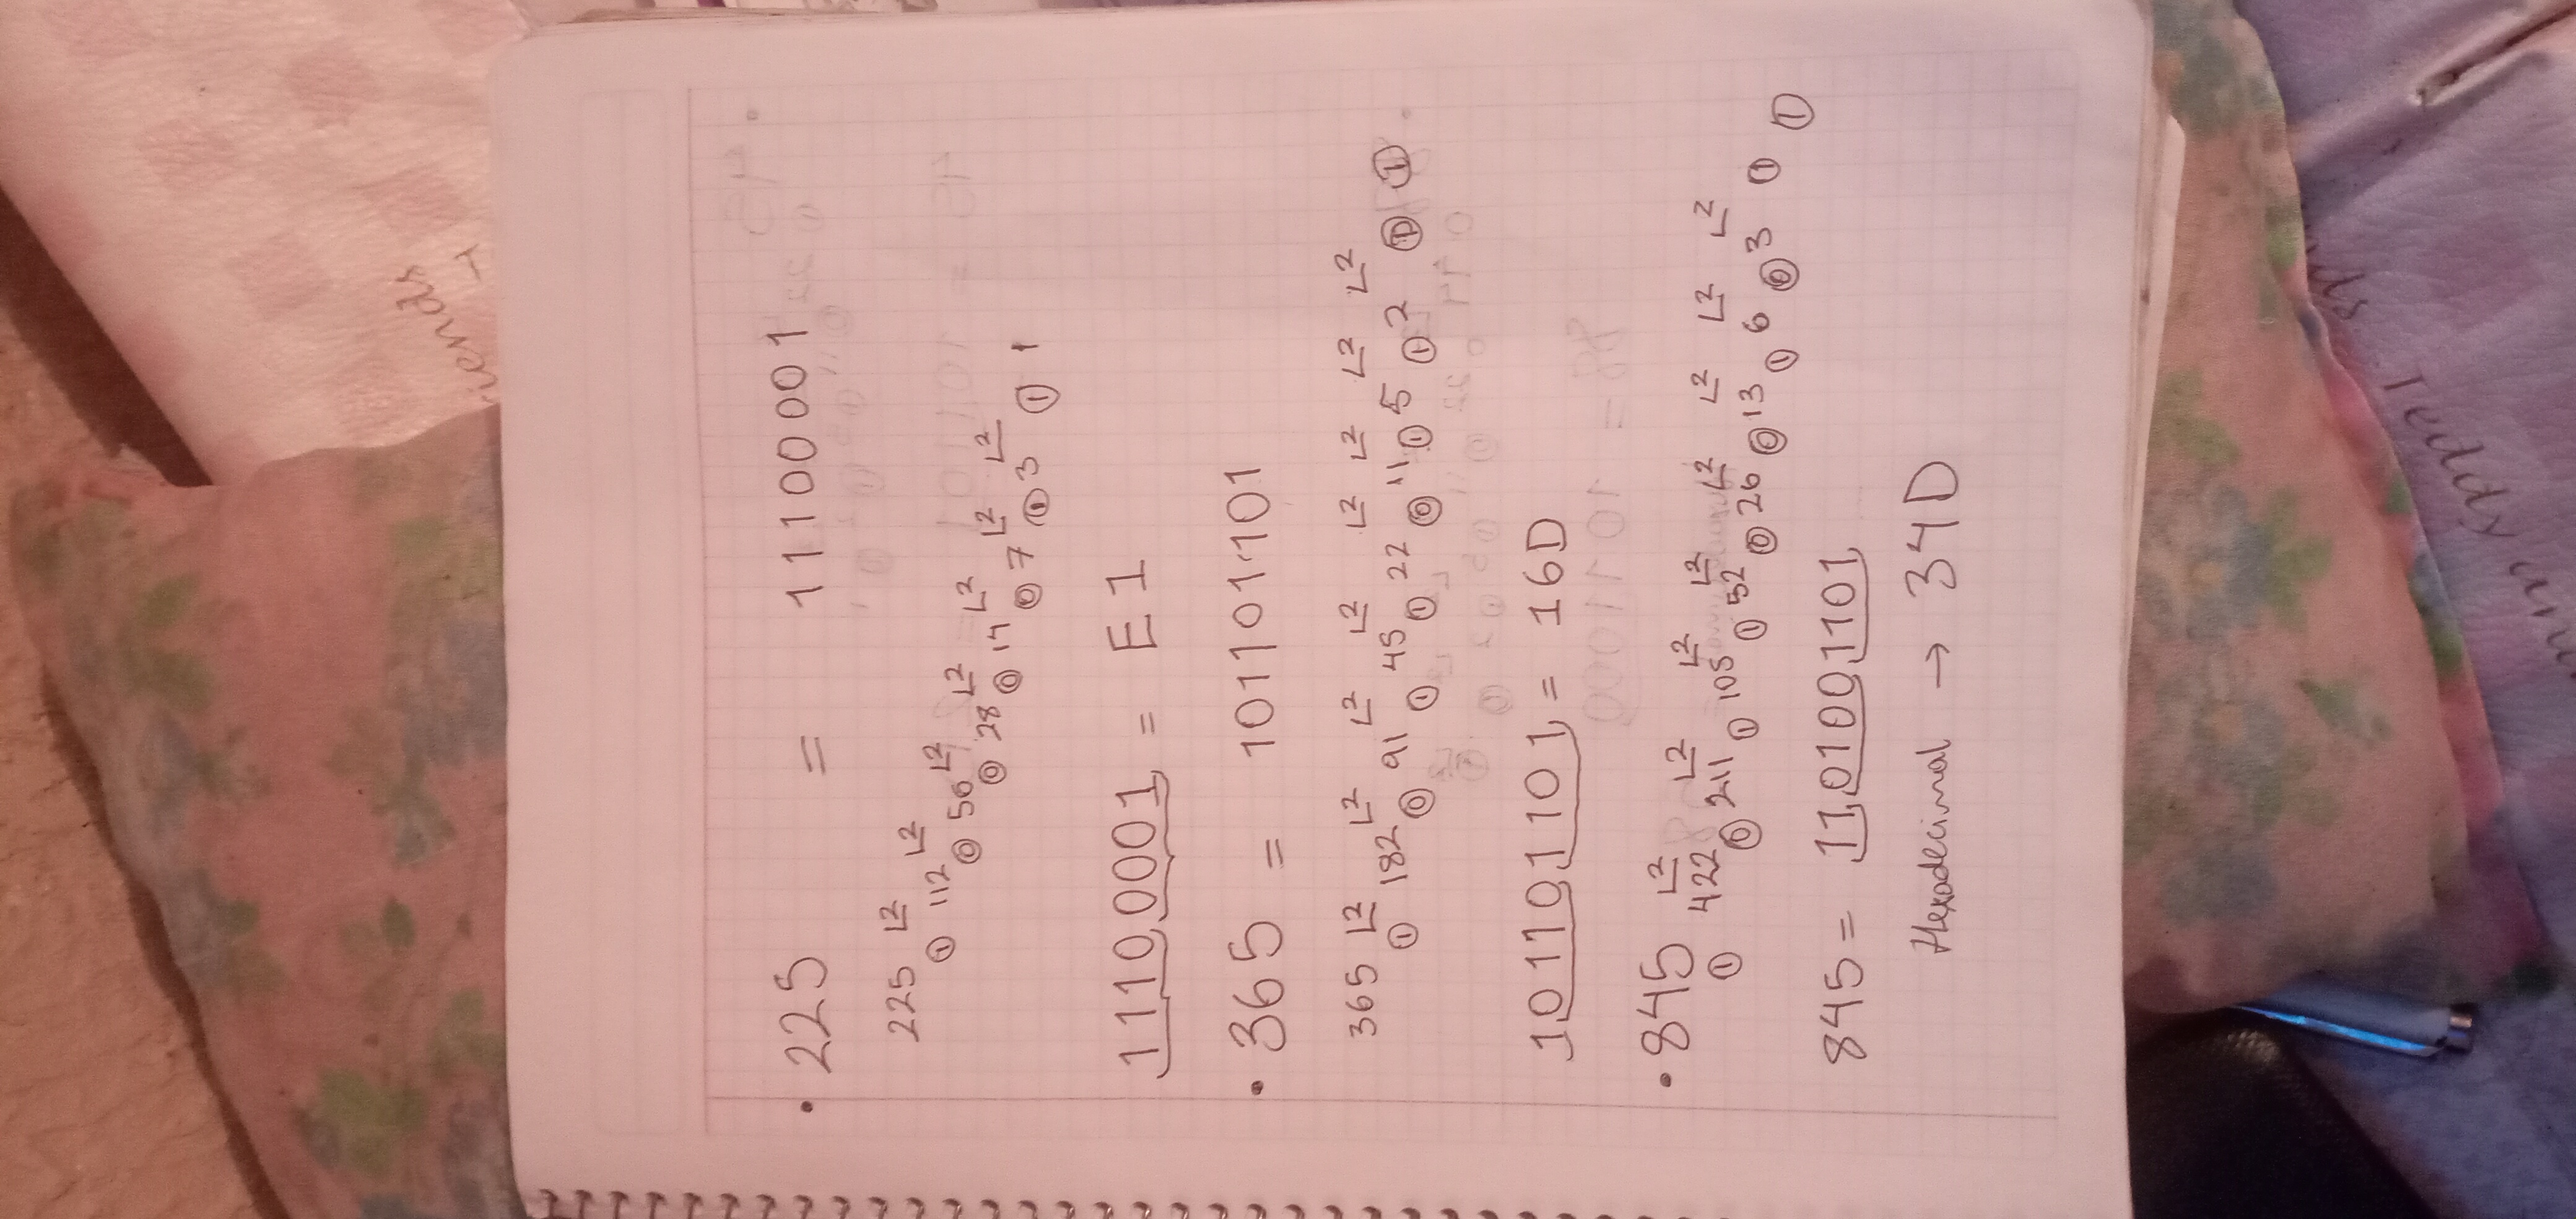 riends
• 225 = 11100001
225 2
1 112 2
0 56 2
0 28 2
0 14 2
0 7 2
1 3 2
1 1
11100001 = E1
• 365 = 101101101
365 2 2 2 2 2 2 2 2
1 182 0 91 1 45 1 22 0 11 1 5 1 2 0 1
101101101 = 16D
• 845 2 2 2 2 2 2 2 2
1 422 0 211 1 105 1 52 0 26 0 13 1 6 0 3 1 1
845 = 1101001101
Hexadecimal → 34D
Teddy